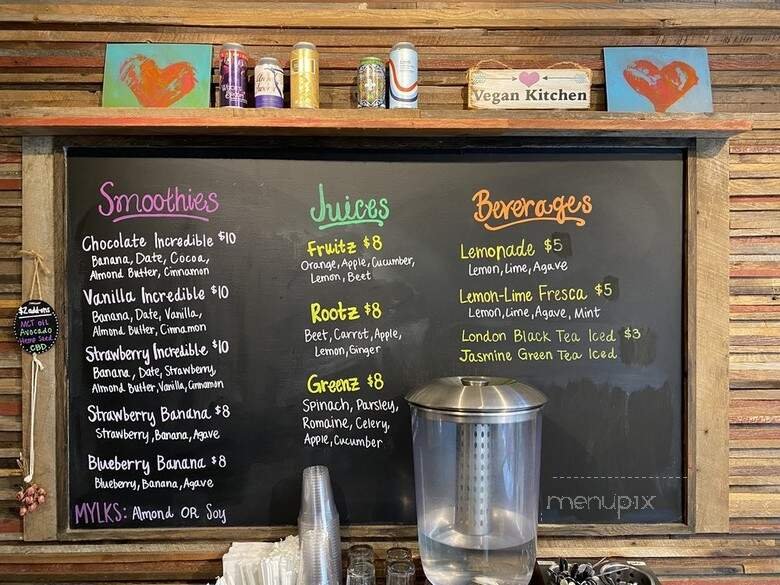 Vegan Kitchen
Smoothies
Chocolate Incredible $10
Banana, Date, Cocoa,
Almond Butter, Cinnamon
Vanilla Incredible $10
Banana, Date, Vanilla,
Almond Butter, Cinnamon
Strawberry Incredible $10
Banana, Date, Strawberry,
Almond Butter, Vanilla, Cinnamon
Strawberry Banana $8
Strawberry, Banana, Agave
Blueberry Banana $8
Blueberry, Banana, Agave
MYLKS: Almond OR Soy
Juices
Fruitz $8
Orange, Apple, Cucumber,
Lemon, Beet
Rootz $8
Beet, Carrot, Apple,
Lemon, Ginger
Greenz $8
Spinach, Parsley,
Romaine, Celery,
Apple, Cucumber
Beverages
Lemonade $5
Lemon, Lime, Agave
Lemon-Lime Fresca $5
Lemon, Lime, Agave, Mint
London Black Tea Iced $3
Jasmine Green Tea Iced
$2 add-ons
MCT oil
Avocado
Hemp Seed
CBD
menupix